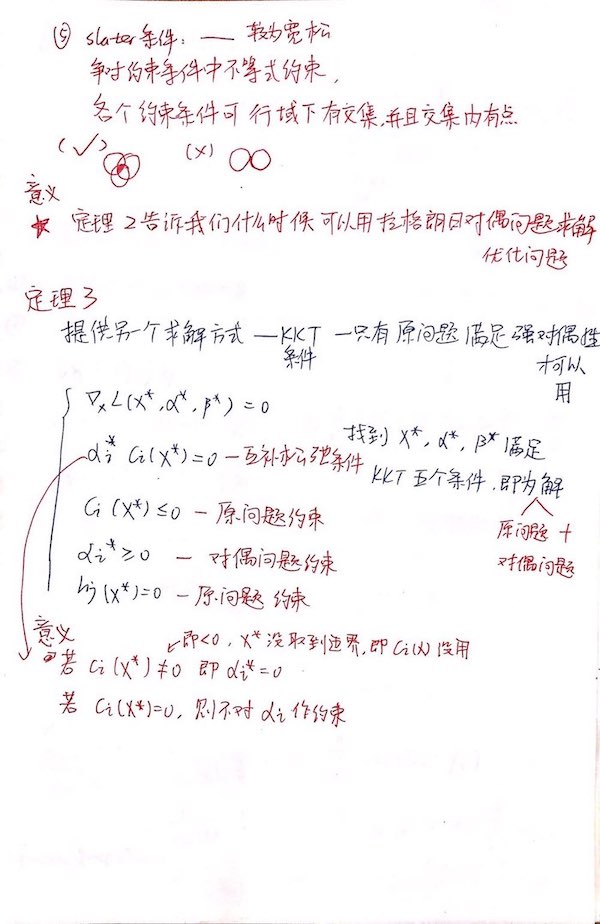 ⑤ slater条件：— 较为宽松
争对约束条件中不等式约束，
各个约束条件可行域下有交集,并且交集内有点
(√) (×)
意义
★ 定理2告诉我们什么时候可以用拉格朗日对偶问题求解
优化问题
定理3
提供另一个求解方式 —KKT条件 —只有原问题满足强对偶性
才可以用
∇ₓL(x*,α*,β*)=0
αᵢ* Cᵢ(x*)=0 —互补松弛条件
找到 x*, α*, β* 满足
KKT五个条件,即为解
Cᵢ(x*)≤0 — 原问题约束
原问题 +
对偶问题
αᵢ*≥0 — 对偶问题约束
hⱼ(x*)=0 — 原问题约束
意义
若 Cᵢ(x*)≠0 即 αᵢ*=0
即<0, x*没取到边界,即Cᵢ(x)没用
若 Cᵢ(x*)=0, 则不对 αᵢ 作约束